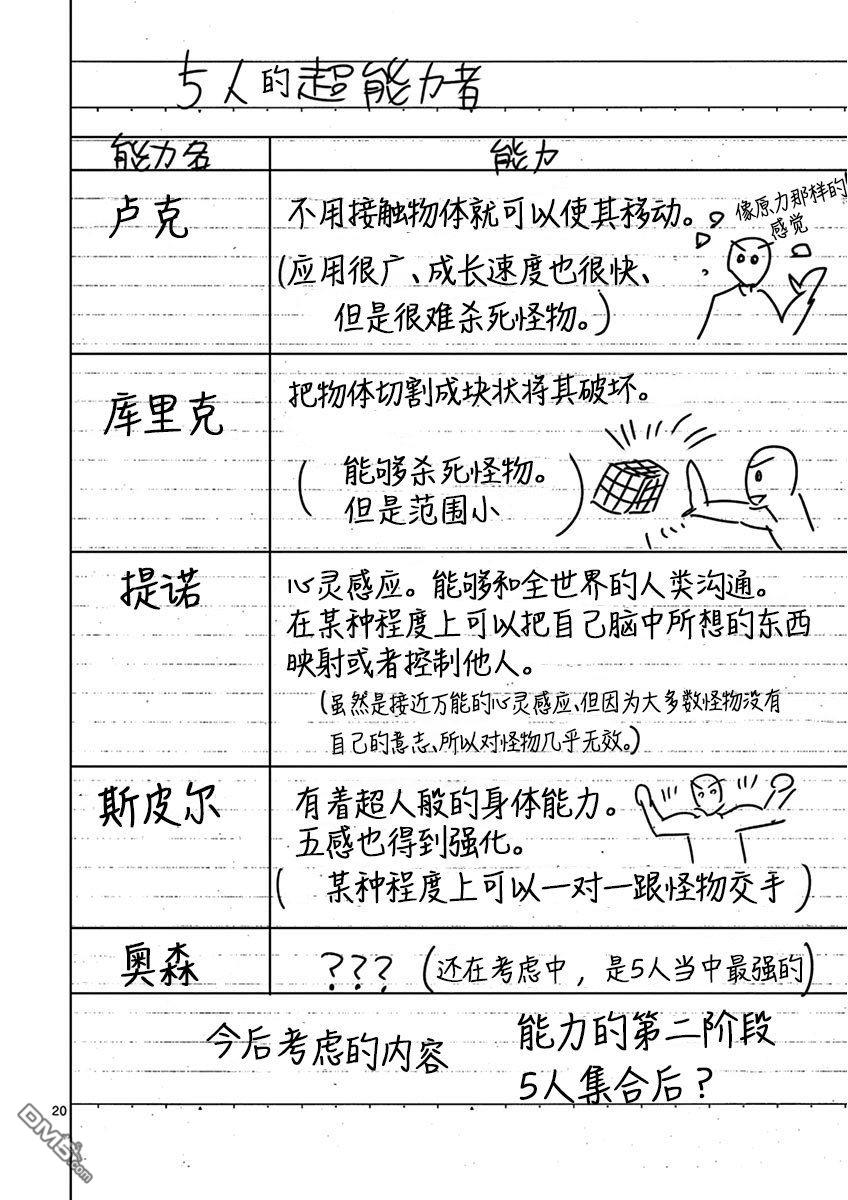 5人的超能力者
能力名
能力
卢克
不用接触物体就可以使其移动。
(应用很广、成长速度也很快、
但是很难杀死怪物。)
像原力那样的
感觉
库里克
把物体切割成块状将其破坏。
(能够杀死怪物。
但是范围小)
提诺
心灵感应。能够和全世界的人类沟通。
在某种程度上可以把自己脑中所想的东西
映射或者控制他人。
(虽然是接近万能的心灵感应、但因为大多数怪物没有
自己的意志、所以对怪物几乎无效。)
斯皮尔
有着超人般的身体能力。
五感也得到强化。
(某种程度上可以一对一跟怪物交手)
奥森
???(还在考虑中,是5人当中最强的)
今后考虑的内容
能力的第二阶段
5人集合后?
20
DM5.com